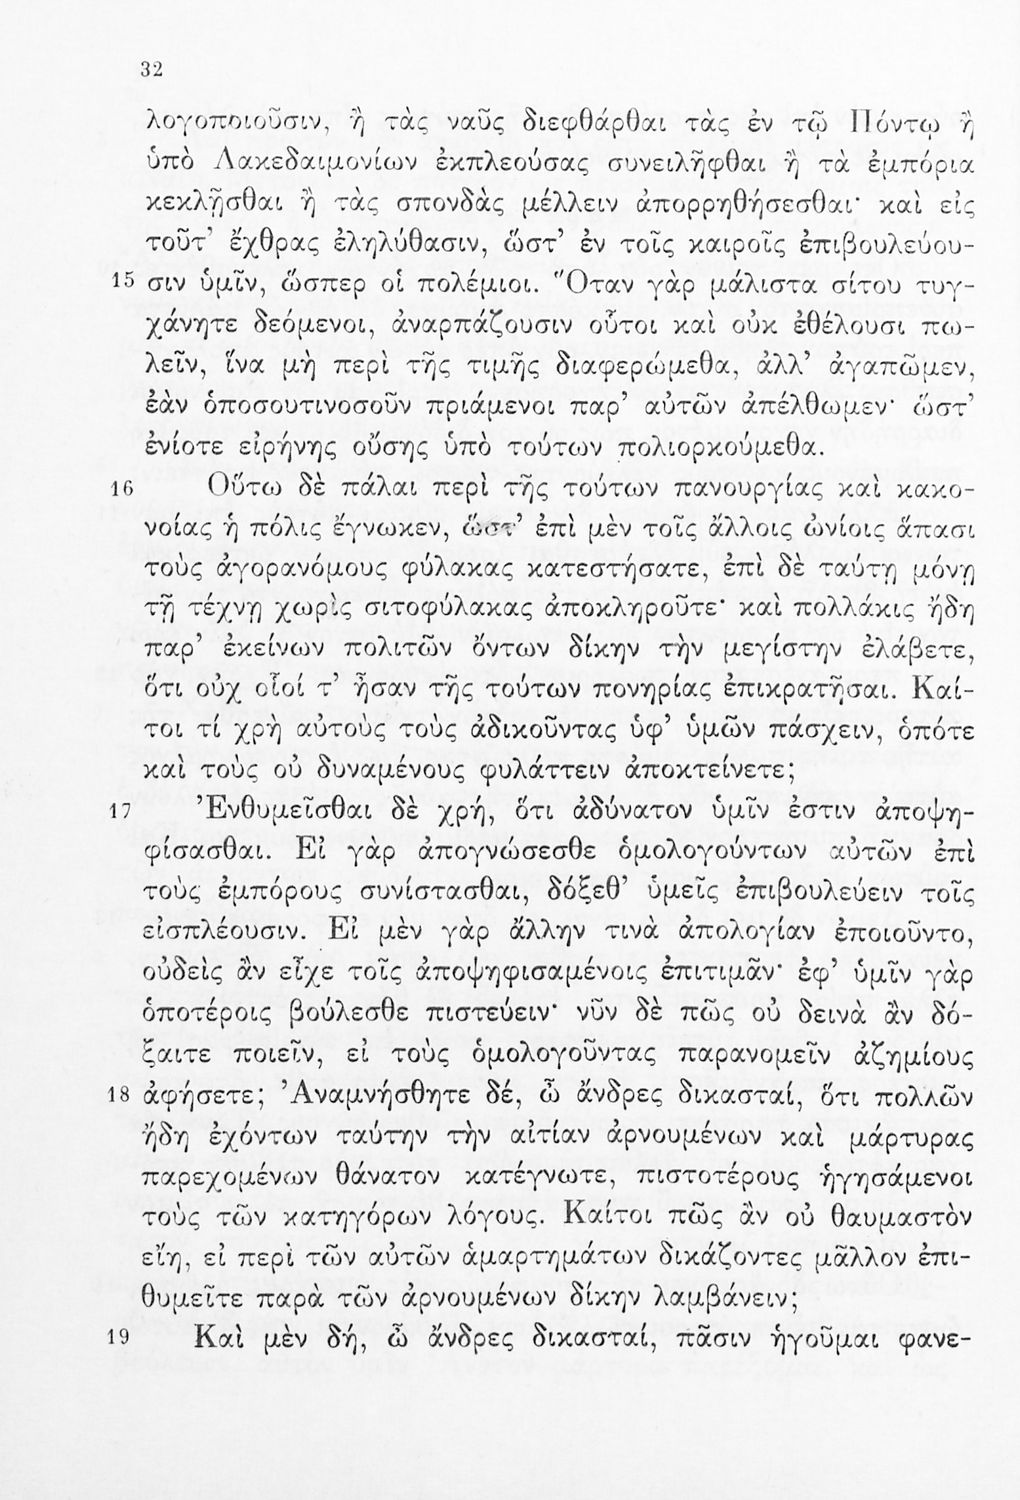 32
λογοποιοῦσιν, ἢ τὰς ναῦς διεφθάρθαι τὰς ἐν τῷ Πόντῳ ἢ
ὑπὸ Λακεδαιμονίων ἐκπλεούσας συνειλῆφθαι ἢ τὰ ἐμπόρια
κεκλῇσθαι ἢ τὰς σπονδὰς μέλλειν ἀπορρηθήσεσθαι· καὶ εἰς
τοῦτ’ ἔχθρας ἐληλύθασιν, ὥστ’ ἐν τοῖς καιροῖς ἐπιβουλεύου-
15 σιν ὑμῖν, ὥσπερ οἱ πολέμιοι. Ὅταν γὰρ μάλιστα σίτου τυγ-
χάνητε δεόμενοι, ἀναρπάζουσιν οὗτοι καὶ οὐκ ἐθέλουσι πω-
λεῖν, ἵνα μὴ περὶ τῆς τιμῆς διαφερώμεθα, ἀλλ’ ἀγαπῶμεν,
ἐὰν ὁποσουτινοσοῦν πριάμενοι παρ’ αὐτῶν ἀπέλθωμεν· ὥστ’
ἐνίοτε εἰρήνης οὔσης ὑπὸ τούτων πολιορκούμεθα.
16 Οὕτω δὲ πάλαι περὶ τῆς τούτων πανουργίας καὶ κακο-
νοίας ἡ πόλις ἔγνωκεν, ὥστ’ ἐπὶ μὲν τοῖς ἄλλοις ὠνίοις ἅπασι
τοὺς ἀγορανόμους φύλακας κατεστήσατε, ἐπὶ δὲ ταύτῃ μόνῃ
τῇ τέχνῃ χωρὶς σιτοφύλακας ἀποκληροῦτε· καὶ πολλάκις ἤδη
παρ’ ἐκείνων πολιτῶν ὄντων δίκην τὴν μεγίστην ἐλάβετε,
ὅτι οὐχ οἷοί τ’ ἦσαν τῆς τούτων πονηρίας ἐπικρατῆσαι. Καί-
τοι τί χρὴ αὐτοὺς τοὺς ἀδικοῦντας ὑφ’ ὑμῶν πάσχειν, ὁπότε
καὶ τοὺς οὐ δυναμένους φυλάττειν ἀποκτείνετε;
17 Ἐνθυμεῖσθαι δὲ χρή, ὅτι ἀδύνατον ὑμῖν ἐστιν ἀποψη-
φίσασθαι. Εἰ γὰρ ἀπογνώσεσθε ὁμολογούντων αὐτῶν ἐπὶ
τοὺς ἐμπόρους συνίστασθαι, δόξεθ’ ὑμεῖς ἐπιβουλεύειν τοῖς
εἰσπλέουσιν. Εἰ μὲν γὰρ ἄλλην τινὰ ἀπολογίαν ἐποιοῦντο,
οὐδεὶς ἂν εἶχε τοῖς ἀποψηφισαμένοις ἐπιτιμᾶν· ἐφ’ ὑμῖν γὰρ
ὁποτέροις βούλεσθε πιστεύειν· νῦν δὲ πῶς οὐ δεινὰ ἂν δό-
ξαιτε ποιεῖν, εἰ τοὺς ὁμολογοῦντας παρανομεῖν ἀζημίους
18 ἀφήσετε; Ἀναμνήσθητε δέ, ὦ ἄνδρες δικασταί, ὅτι πολλῶν
ἤδη ἐχόντων ταύτην τὴν αἰτίαν ἀρνουμένων καὶ μάρτυρας
παρεχομένων θάνατον κατέγνωτε, πιστοτέρους ἡγησάμενοι
τοὺς τῶν κατηγόρων λόγους. Καίτοι πῶς ἂν οὐ θαυμαστὸν
εἴη, εἰ περὶ τῶν αὐτῶν ἁμαρτημάτων δικάζοντες μᾶλλον ἐπι-
θυμεῖτε παρὰ τῶν ἀρνουμένων δίκην λαμβάνειν;
19 Καὶ μὲν δή, ὦ ἄνδρες δικασταί, πᾶσιν ἡγοῦμαι φανε-